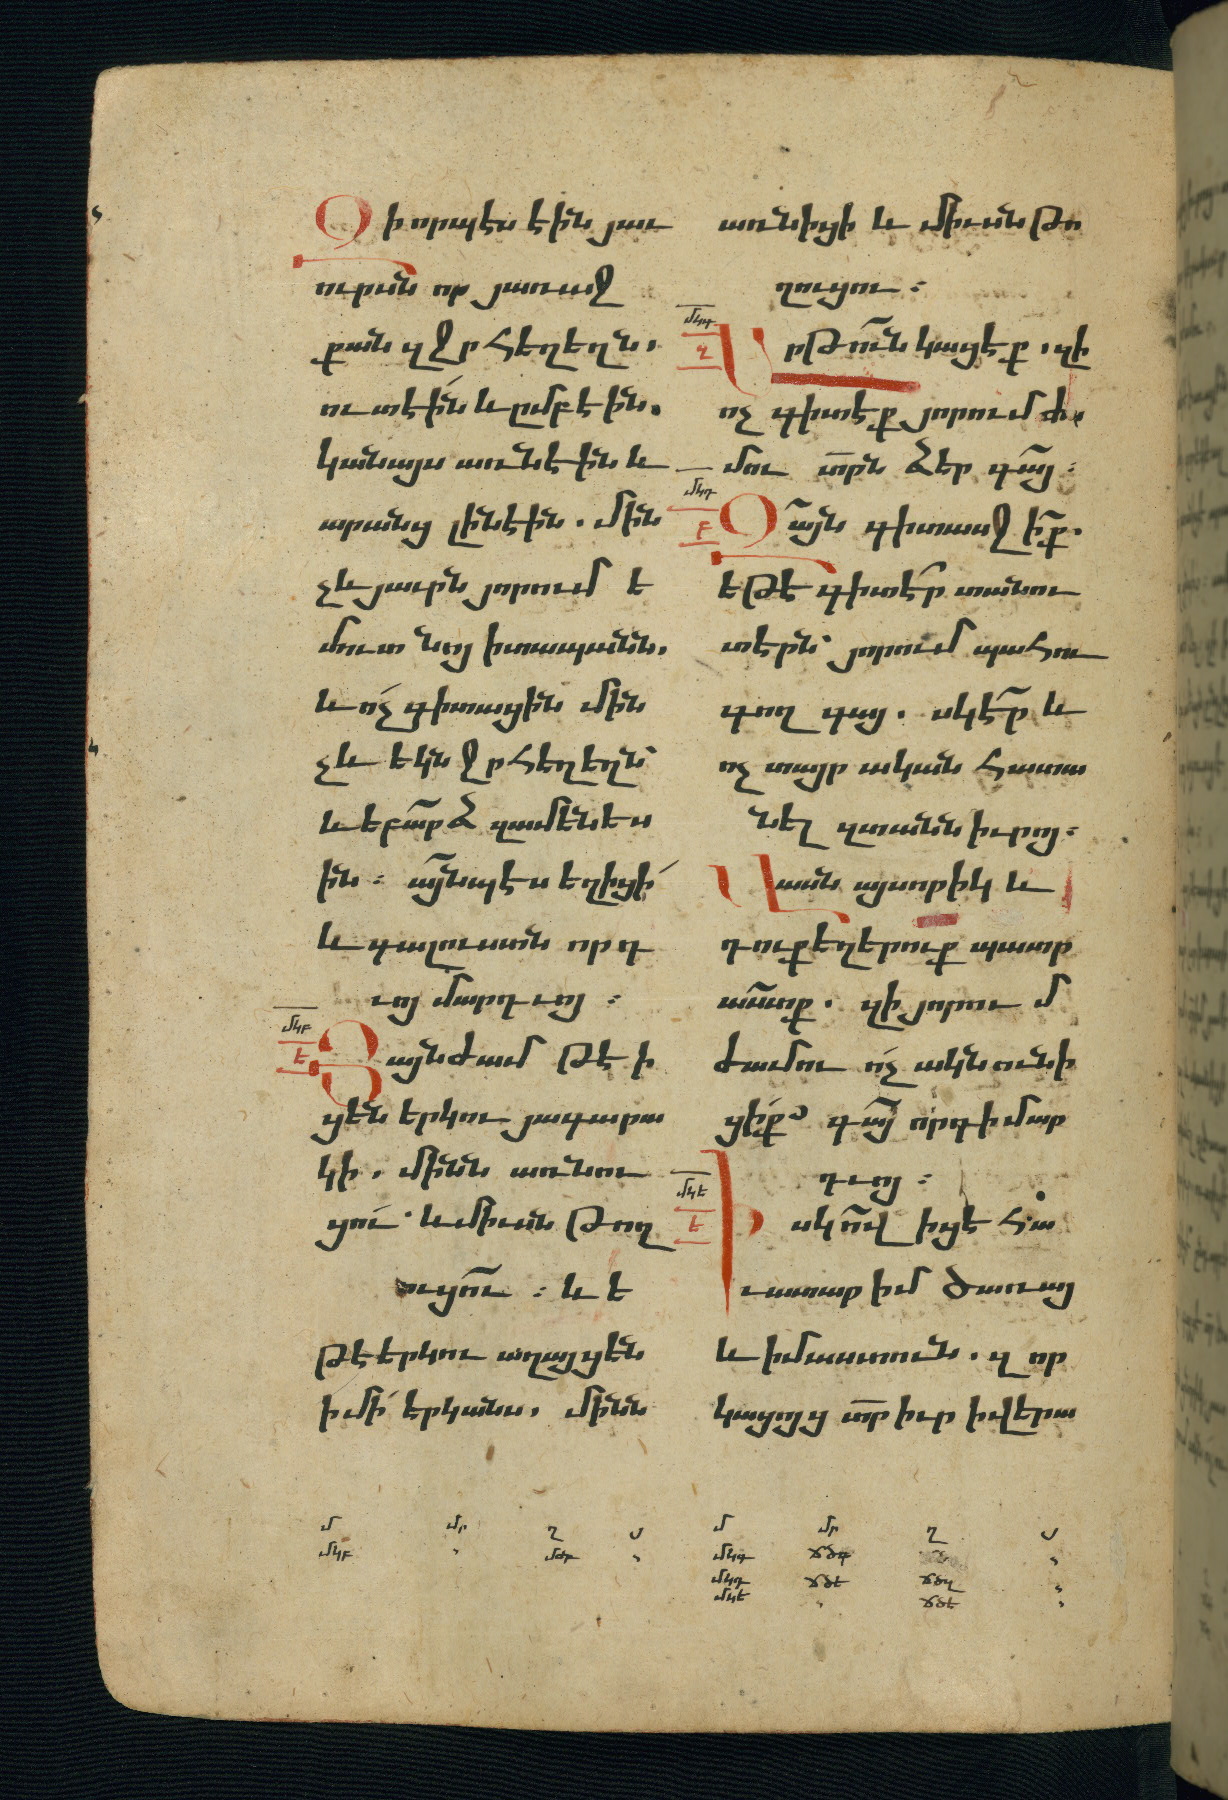 Զի որպէս էին յաւ
ուրսն որ յառաջ
քան զջրհեղեղն.
ուտէին և ըմբէին.
կանայս առնէին և
արանց լինէին. մին
չև յաւրն յորում ե
մուտ նոյ ի տապանն.
և ոչ գիտացին մին
չև եկն ջրհեղեղն՝
և եբարձ զամենես
ին : այնպէս եղիցի
և գալուստն որդ
ւոյ մարդւոյ :
մկբ
ե
Յայնժամ թէ ի
ցեն երկու յագարա
կի. մինն առնու
ցու՝ և միւսն թող
ուցու : և ե
թէ երկու աղայցեն
ի մի երկանս. մինն
առնիցի և միւսն թո
ղուցու :
մկգ
զ
Արթուն կացէք. զի
ոչ գիտէք յորում ժա
մու տրն ձեր գայ :
մկդ
բ
Զայն գիտասջիք.
եթէ գիտէր տանու
տէրն՝ յորում պահու
գող գայ. սկէր և
ոչ տայր ական հատա
նել զտանն իւրոյ :
Վասն այսորիկ և
դուք եղերուք պատր
աստք. զի յորում
ժամու ոչ ակն ունի
ցիք՝ գայ որդի մար
դւոյ :
մկե
ե
Իսկ ով իցէ հա
ւատարիմ ծառայ
և իմաստուն. զոր
կացոյց տր իւր ի վերա
մ մր ղ յ
մկբ
մ մր ղ յ
մկգ ճծգ
մկդ ճծե ճծղ
մկե ճծե